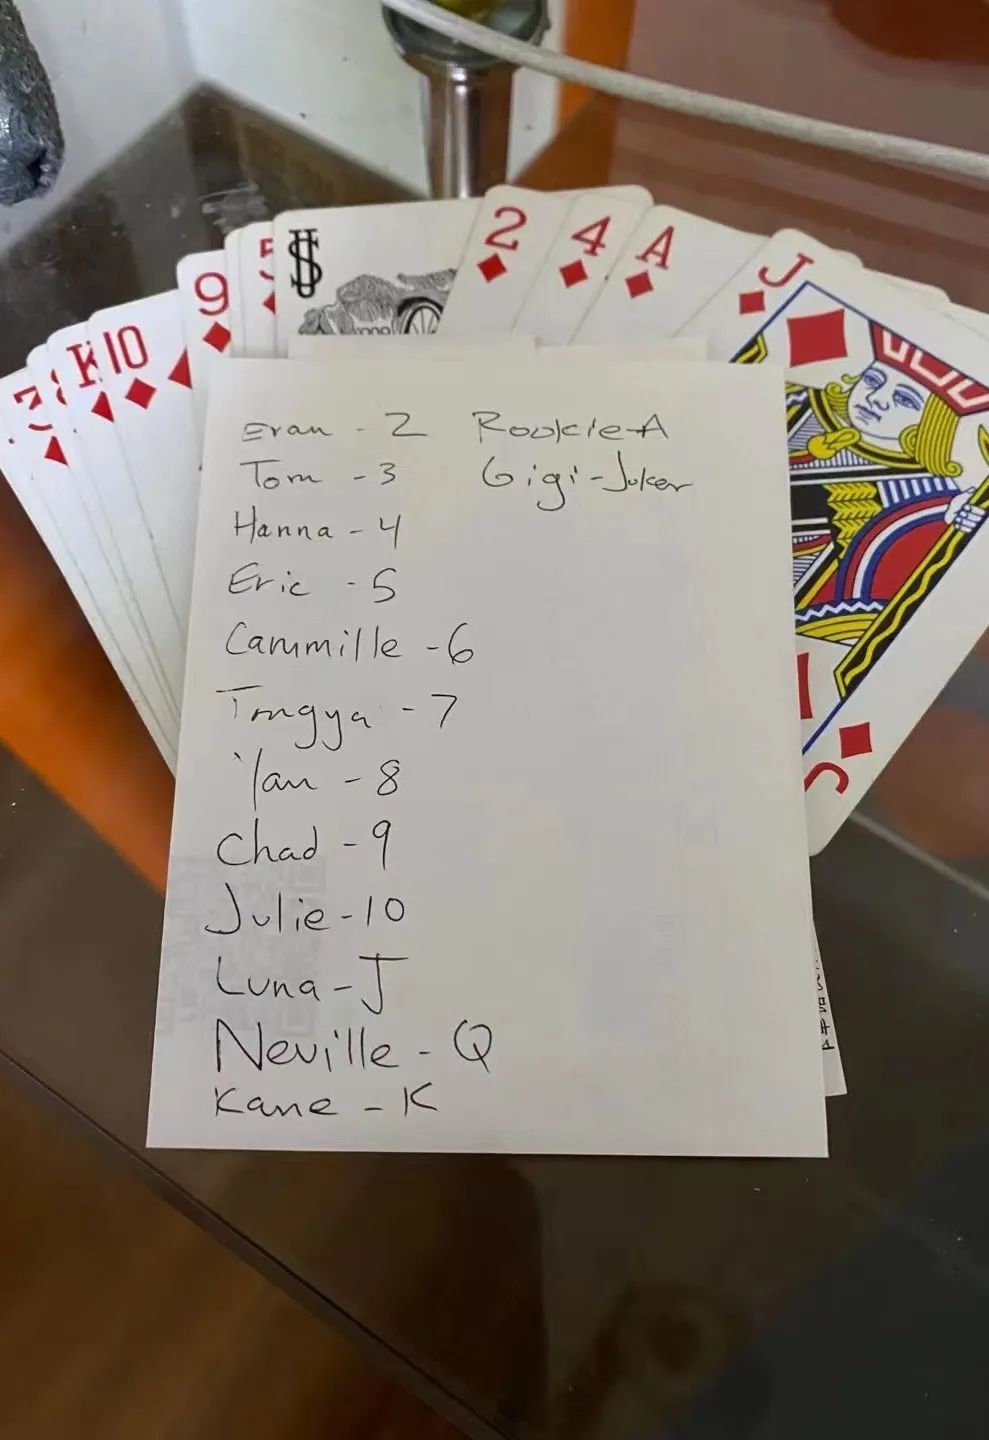 3
8
K
10
9
5
JS
2
4
A
J
Evan - 2 Rookie-A
Tom - 3 Gigi-Joker
Hanna - 4
Eric - 5
Cammille - 6
Tingya - 7
Yan - 8
Chad - 9
Julie - 10
Luna - J
Neville - Q
Kane - K
J